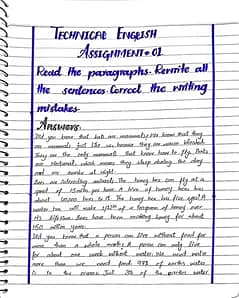 TECHNICAL ENGLISH
ASSIGNMENT # 01
Read the paragraphs. Rewrite all
the sentences. Correct the writing
mistakes.
ANSWERS:
Did you know that bats are mammals? We know that they
are mammals just like us, because they are warm blooded.
They are the only mammals that know how to fly. Bats
are Nocturnal, which means they sleep during the day
and are awake at night.
Bees are interesting animals. The honey bee can fly at a
speed of 15 miles per hour. A hive of honey bees has
about 60,000 bees in it. The honey bee has five eyes. A
bee will make 1/12th of a teaspoon of honey over
its lifetime. Bees have been making honey for about
150 million years.
Did you know that a person can live without food for
more than a whole month? A person can only live
for about one week without water. We need water
more than we need food. 97% of water
is in the oceans. Just 3% of the water